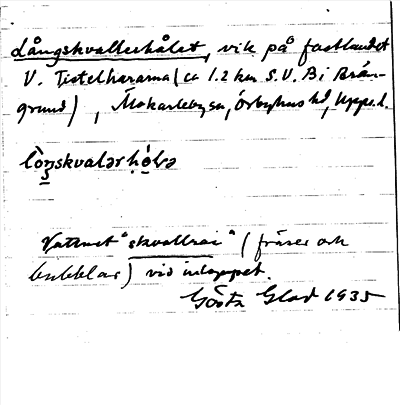 Långskvallerhålet, vik på fastlandet
V. Tistelhararna (ca 1.2 km S.V. Bi Brån-
grund), Mokarlebyen, Örbyhus hd, Upps.l.
Vattnet "skvallrar" (fräser och
bubblar) vid inloppet.
Gösta Glad 1935